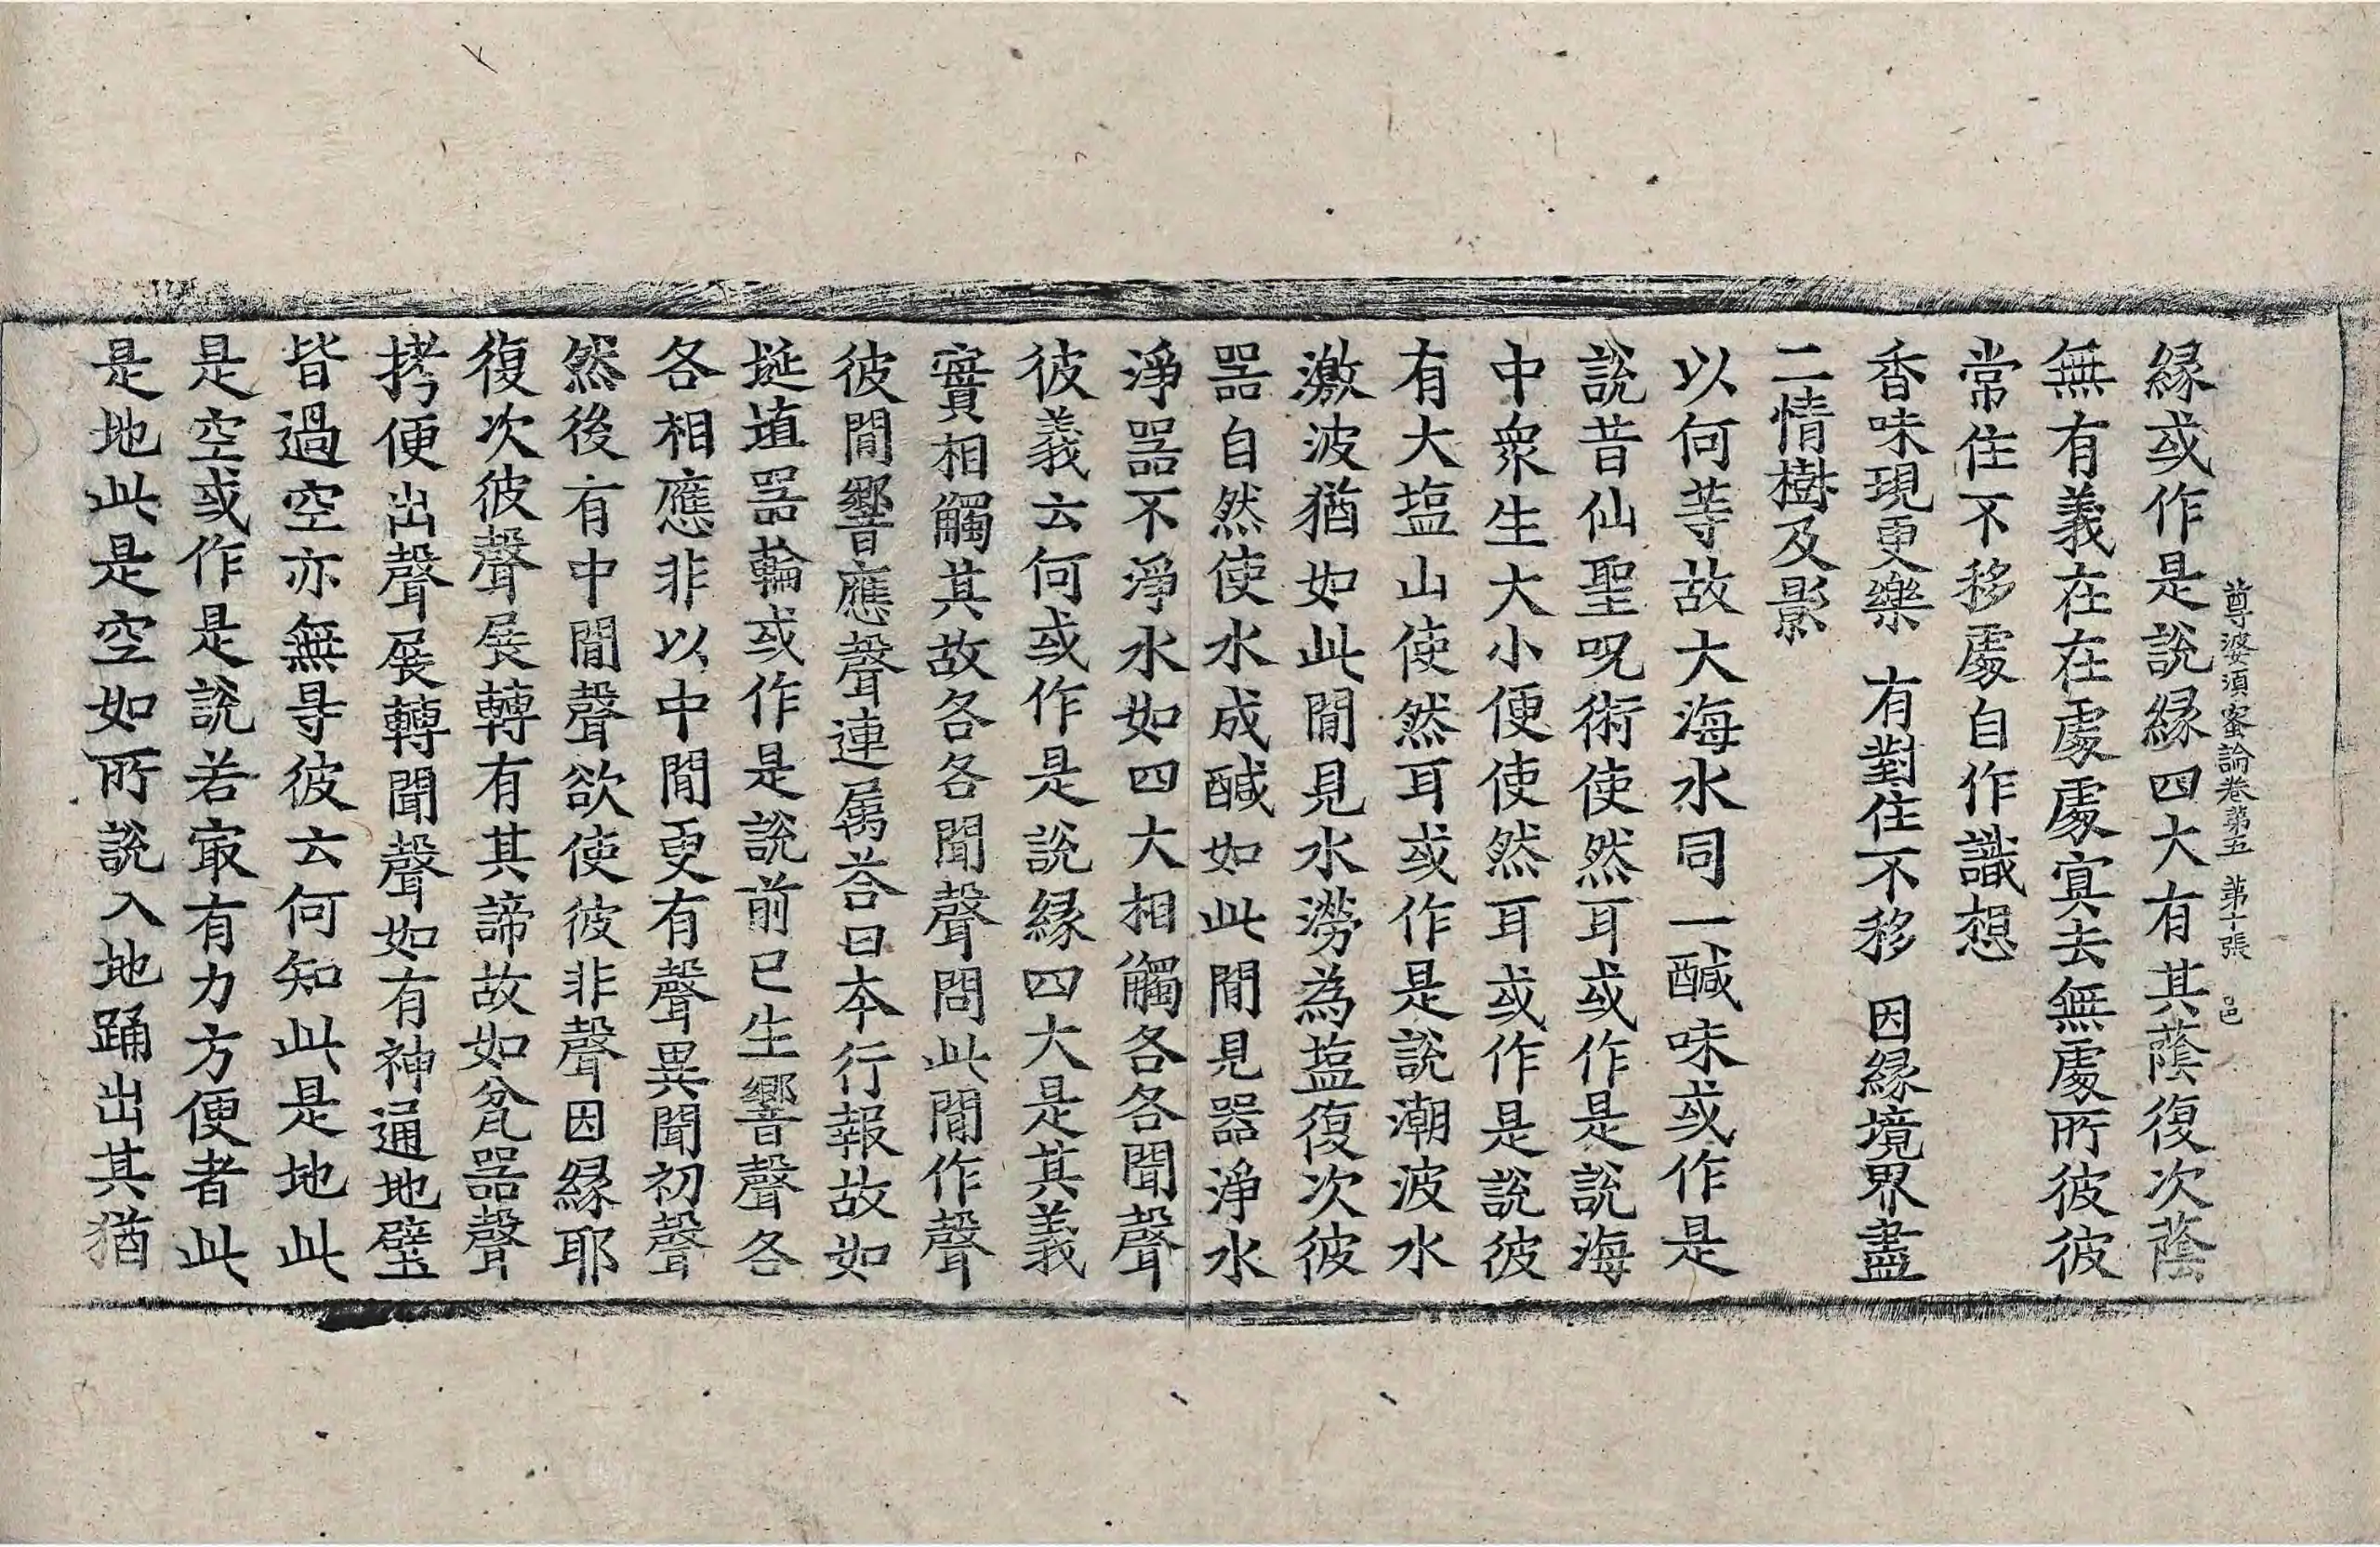 緣或作是說緣四大有其蔭復次蔭
尊婆須蜜論卷第五 第十張 邑
無有義在在處處寘去無處所彼彼
常住不移處自作識想
香味現更樂 有對住不移 因緣境界盡
二情樹及影
以何等故大海水同一醎味或作是
說昔仙聖呪術使然耳或作是說海
中衆生大小便使然耳或作是說彼
有大塩山使然耳或作是說潮波水
激波猶如此閒見水澇為塩復次彼
器自然使水成醎如此閒見器淨水
淨器不淨水如四大相觸各各聞聲
彼義云何或作是說緣四大是其義
實相觸其故各各聞聲問此閒作聲
彼閒響應聲連屬荅曰本行報故如
埏埴器輪或作是說前已生響聲各
各相應非以中閒更有聲異聞初聲
然後有中閒聲欲使彼非聲因緣耶
復次彼聲展轉有其諦故如瓫器聲
拷便出聲展轉聞聲如有神通地壁
皆過空亦無㝵彼云何知此是地此
是空或作是說若㝡有力方便者此
是地此是空如所說入地踊出其猶